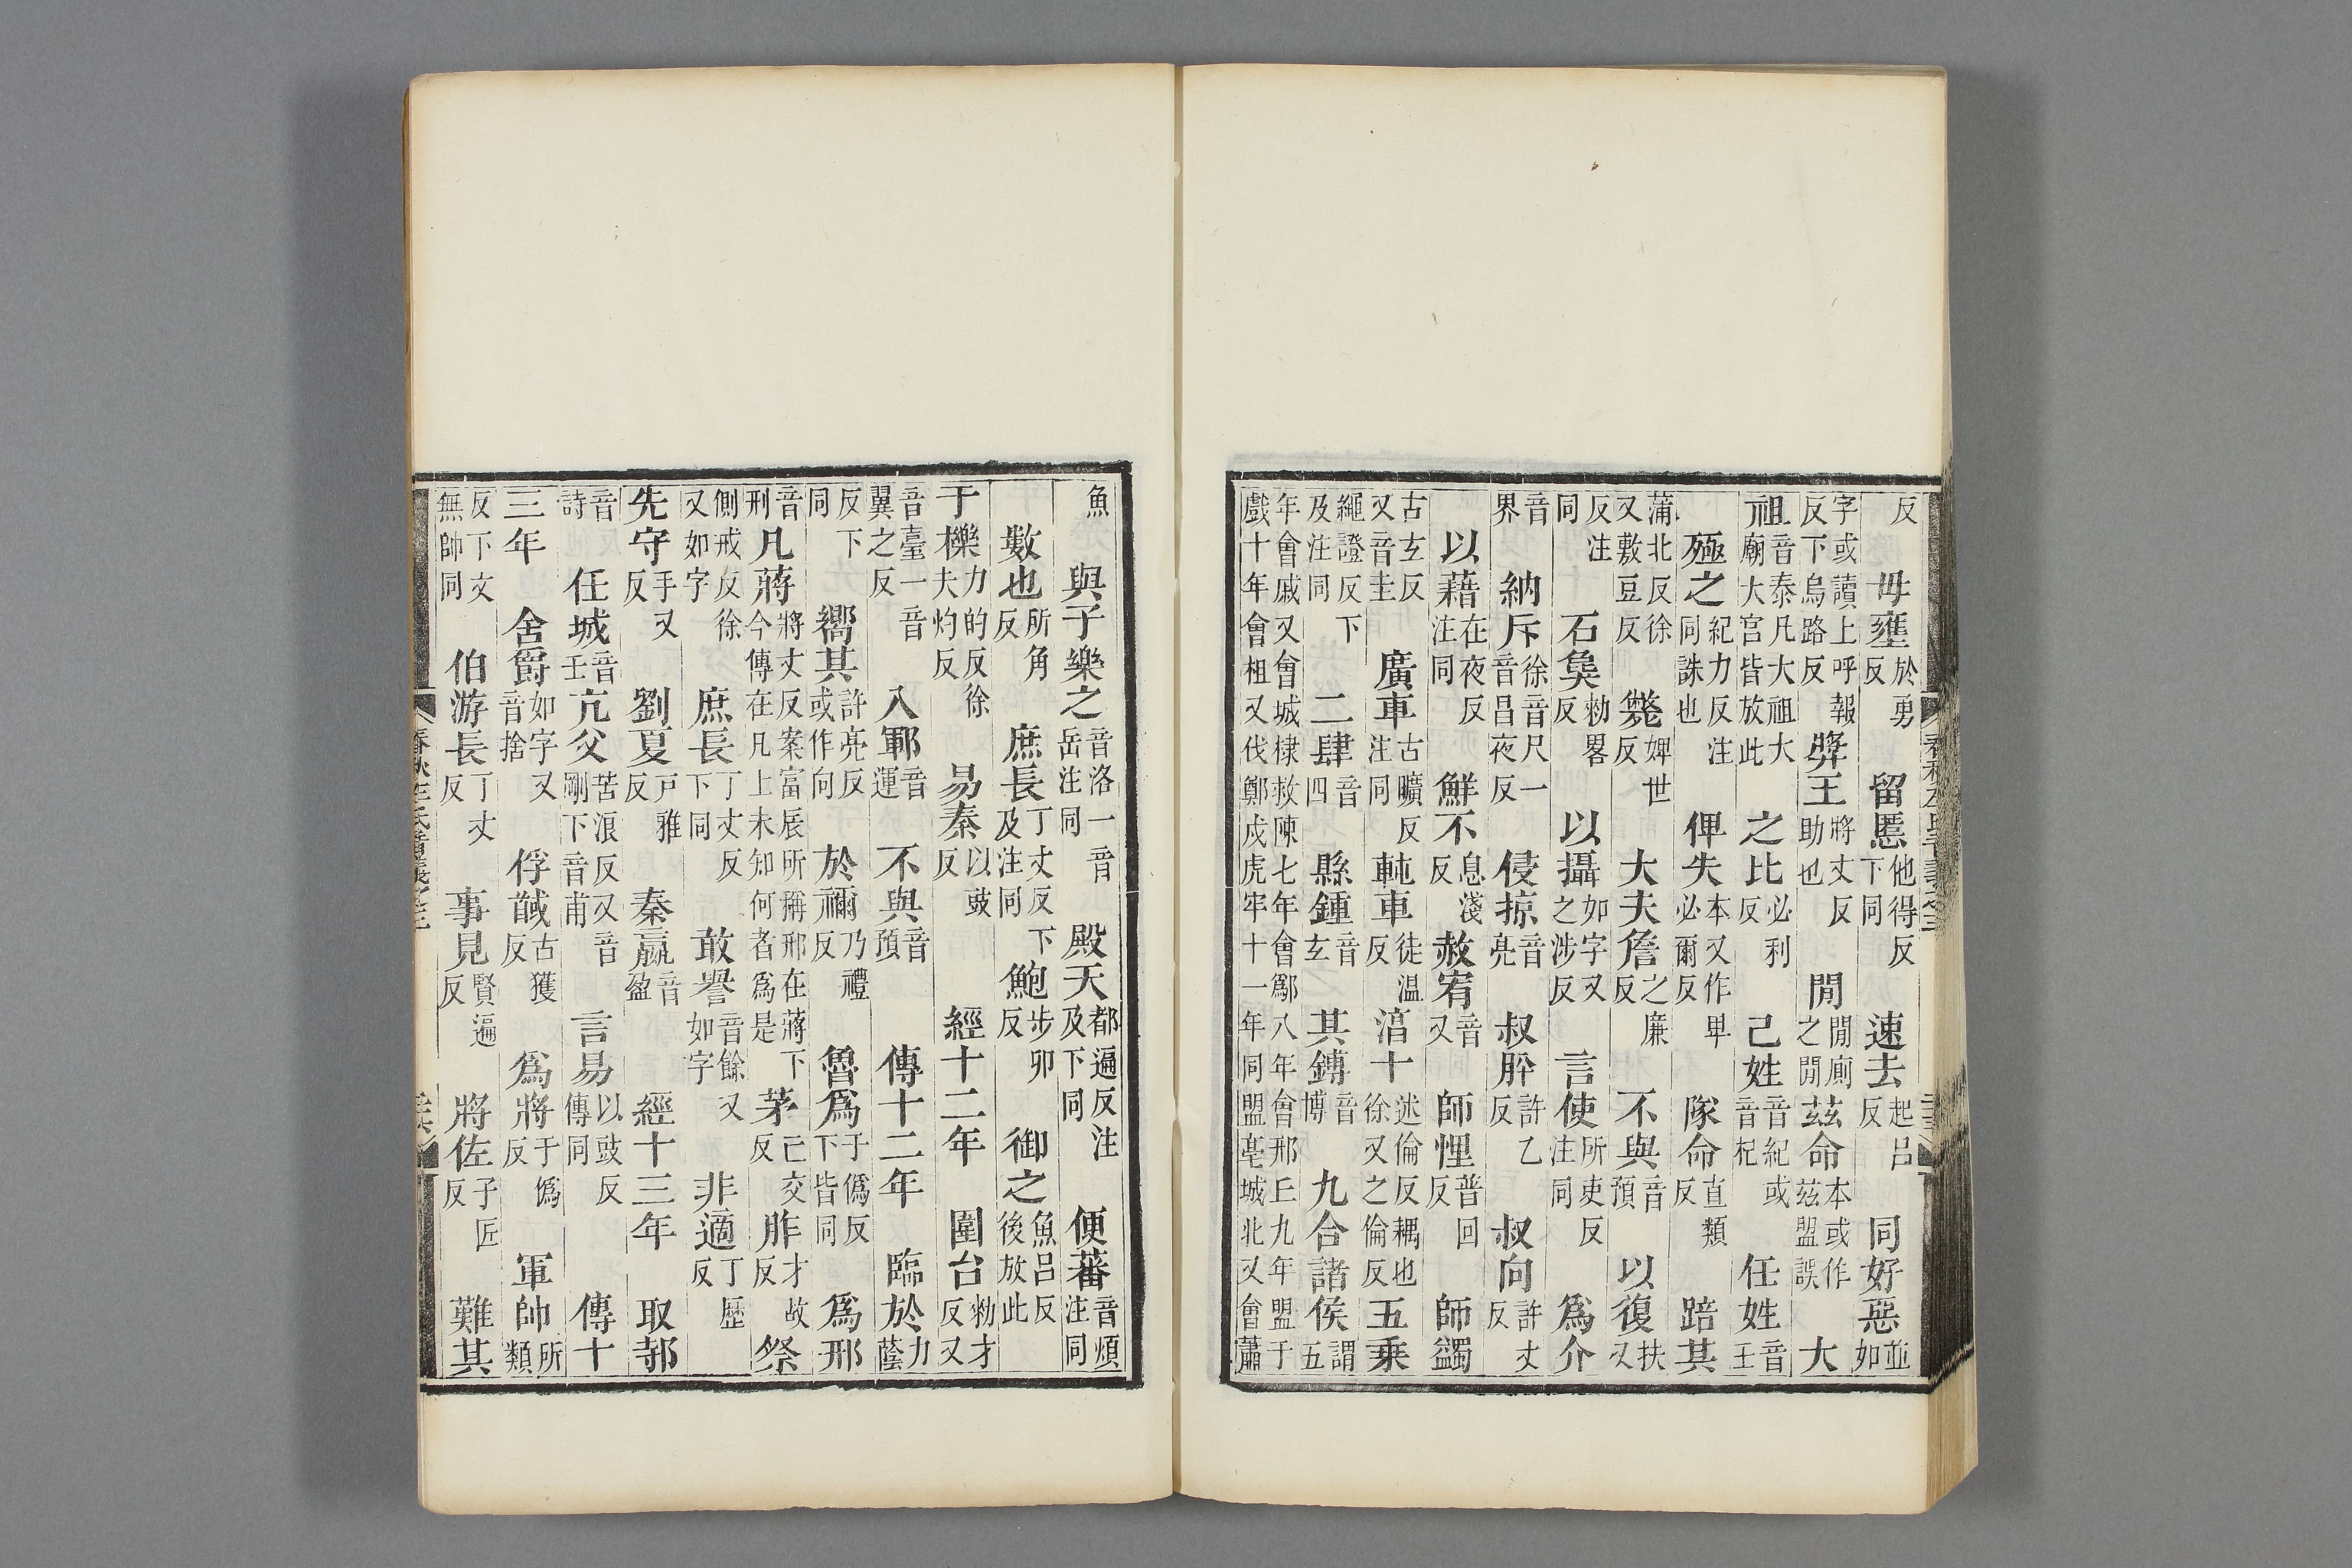 反　毋壅於勇反　留慝他得反下同　速去起呂反　同好惡並如
字或讀上呼報反下烏路反　弊王將丈反助也　閒閒廁之閒　茲命本或作茲盟誤　大
祖音泰凡大祖大廟大宮皆放此　之比必利反　己姓音紀或音杞　任姓音壬
殛之紀力反注同誅也　俾失本又作卑必爾反　隊命直類反　踣其
蒲北反徐又敷豆反　斃婢世反　大夫詹之廉反　不與音預　以復扶又
反注同　石㚟勑畧反　以攝如字又之涉反　言使所吏反注同　爲介
音界　納斥徐音尺一音昌夜反　侵掠音亮　叔肸許乙反　叔向許丈反
以藉在夜反注同　鮮不息淺反　赦宥音又　師悝普回反　師蠲
古玄反又音圭　廣車古曠反注同　軘車徒溫反　淳十述倫反耦也徐又之倫反　五乘
繩證反下及注同　二肆音四　縣鍾音玄　其鏄音博　九合諸侯謂五
年會戚又會城棣救陳七年會鄬八年會邢丘九年盟于戲十年會柤又伐鄭戍虎牢十一年同盟亳城北又會蕭
魚　與子樂之音洛一音岳注同　殿天都遍反注及下同　便蕃音煩注同
數也所角反　庶長丁丈反下及注同　鮑步卯反　御之魚呂反後放此
于櫟力的反徐夫灼反　易秦以豉反　經十二年　圍台勑才反又
音臺一音翼之反　入鄆音運　不與音預　傳十二年　臨於力蔭
反下同　嚮其許亮反或作向　於禰乃禮反　魯爲于僞反下皆同　爲邢
音刑　凡蔣將丈反案富辰所稱邢在蔣下今傳在凡上未知何者爲是　茅亡交反　胙才故反　祭
側戒反徐又如字　庶長丁丈反下同　敢譽音餘又如字　非適丁歷反
先守手又反　劉夏戶雅反　秦嬴音盈　經十三年　取邿
音詩　任城音壬　亢父苦浪反又音剛下音甫　言易以豉反傳同　傳十
三年　舍爵如字又音捨　俘馘古獲反　爲將于僞反　軍帥所類
反下文無帥同　伯游長丁丈反　事見賢遍反　將佐子匠反　難其